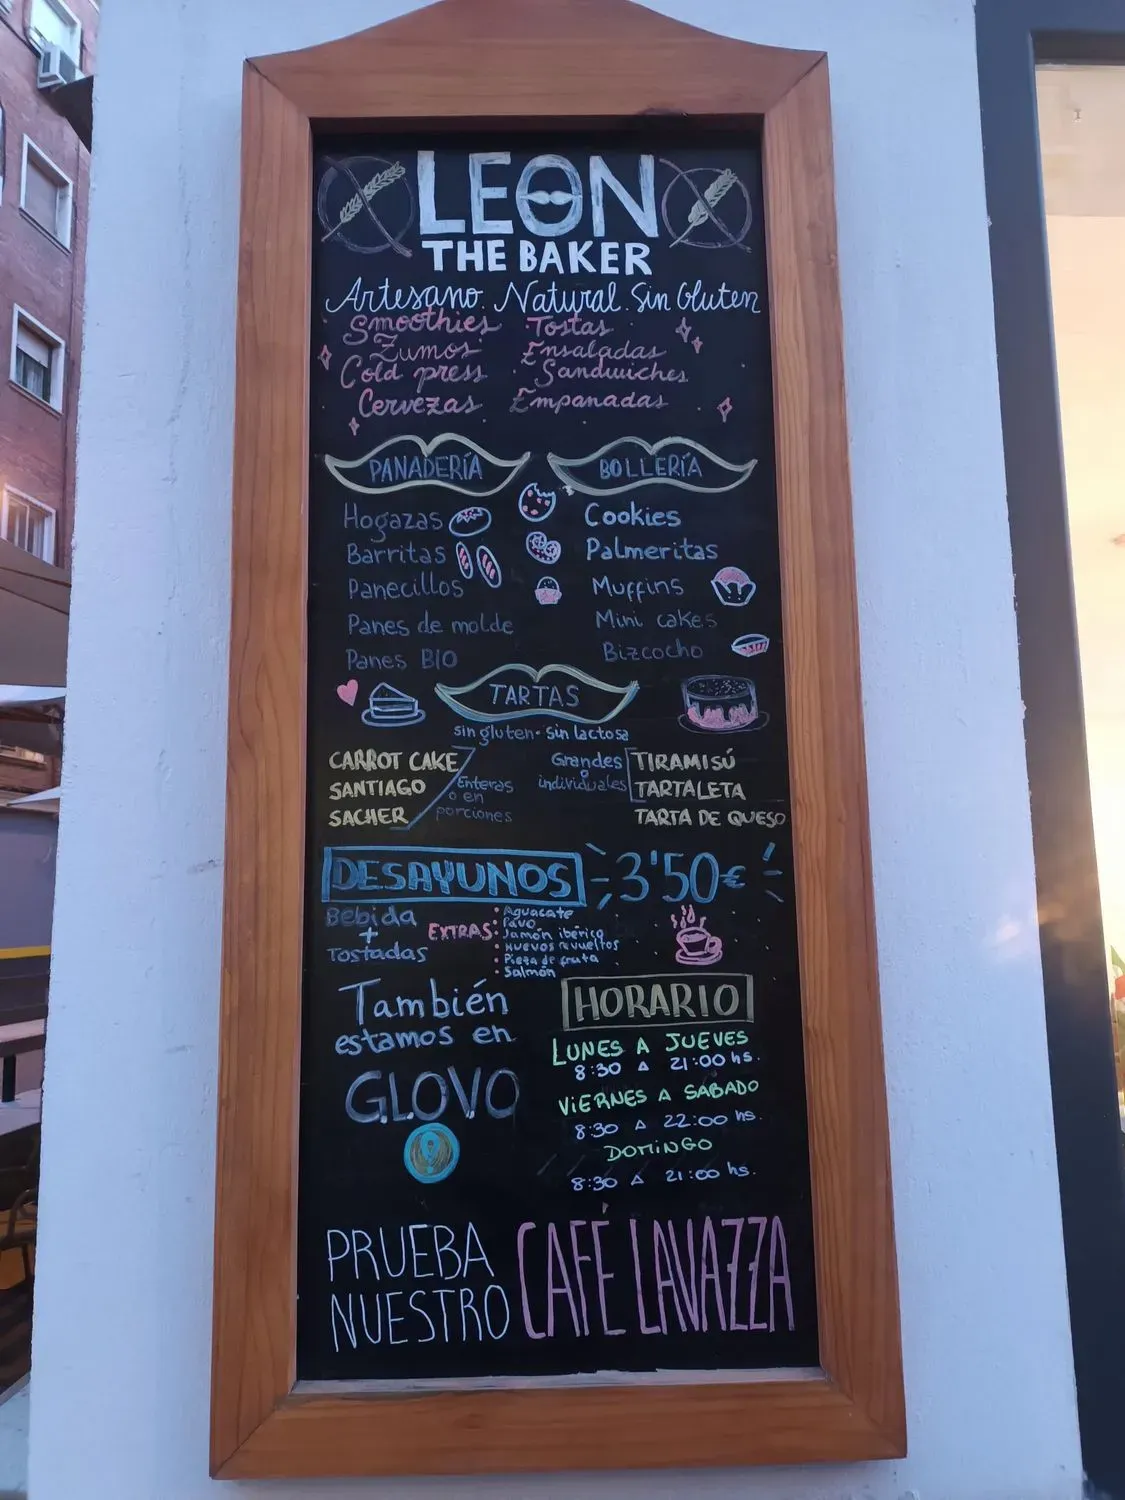 LEON
THE BAKER
Artesano. Natural. Sin Gluten
Smoothies · Tostas
Zumos · Ensaladas
Cold press · Sandwiches
Cervezas Empanadas
PANADERÍA
Hogazas
Barritas
Panecillos
Panes de molde
Panes BIO
BOLLERÍA
Cookies
Palmeritas
Muffins
Mini cakes
Bizcocho
TARTAS
sin gluten - sin lactosa
CARROT CAKE
SANTIAGO
SACHER
Enteras
o en
porciones
Grandes
o
individuales
TIRAMISÚ
TARTALETA
TARTA DE QUESO
DESAYUNOS 3'50€
Bebida
+
Tostadas
EXTRAS:
Aguacate
Pavo
Jamón ibérico
Huevos revueltos
Pieza de fruta
Salmón
También
estamos en
GLOVO
HORARIO
LUNES A JUEVES
8:30 A 21:00 hs.
VIERNES A SABADO
8:30 A 22:00 hs.
DOMINGO
8:30 A 21:00 hs.
PRUEBA
NUESTRO
CAFÉ LAVAZZA